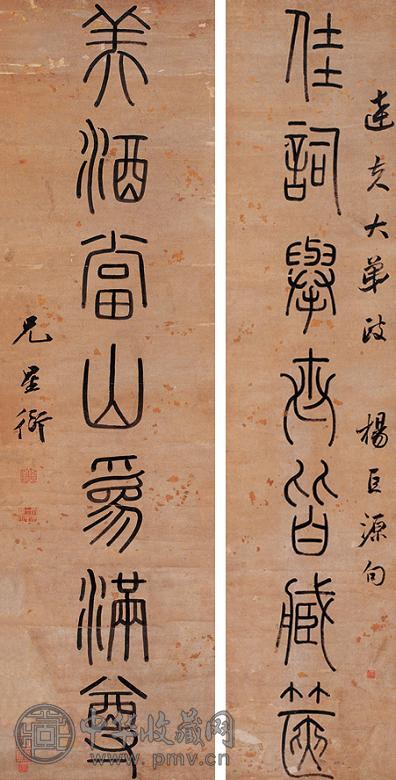 大弟政 楊巨源句
佳詞舉世皆藏篋
美酒當山爲滿尊
兄星衍
中华收藏网
www.pmv.cn